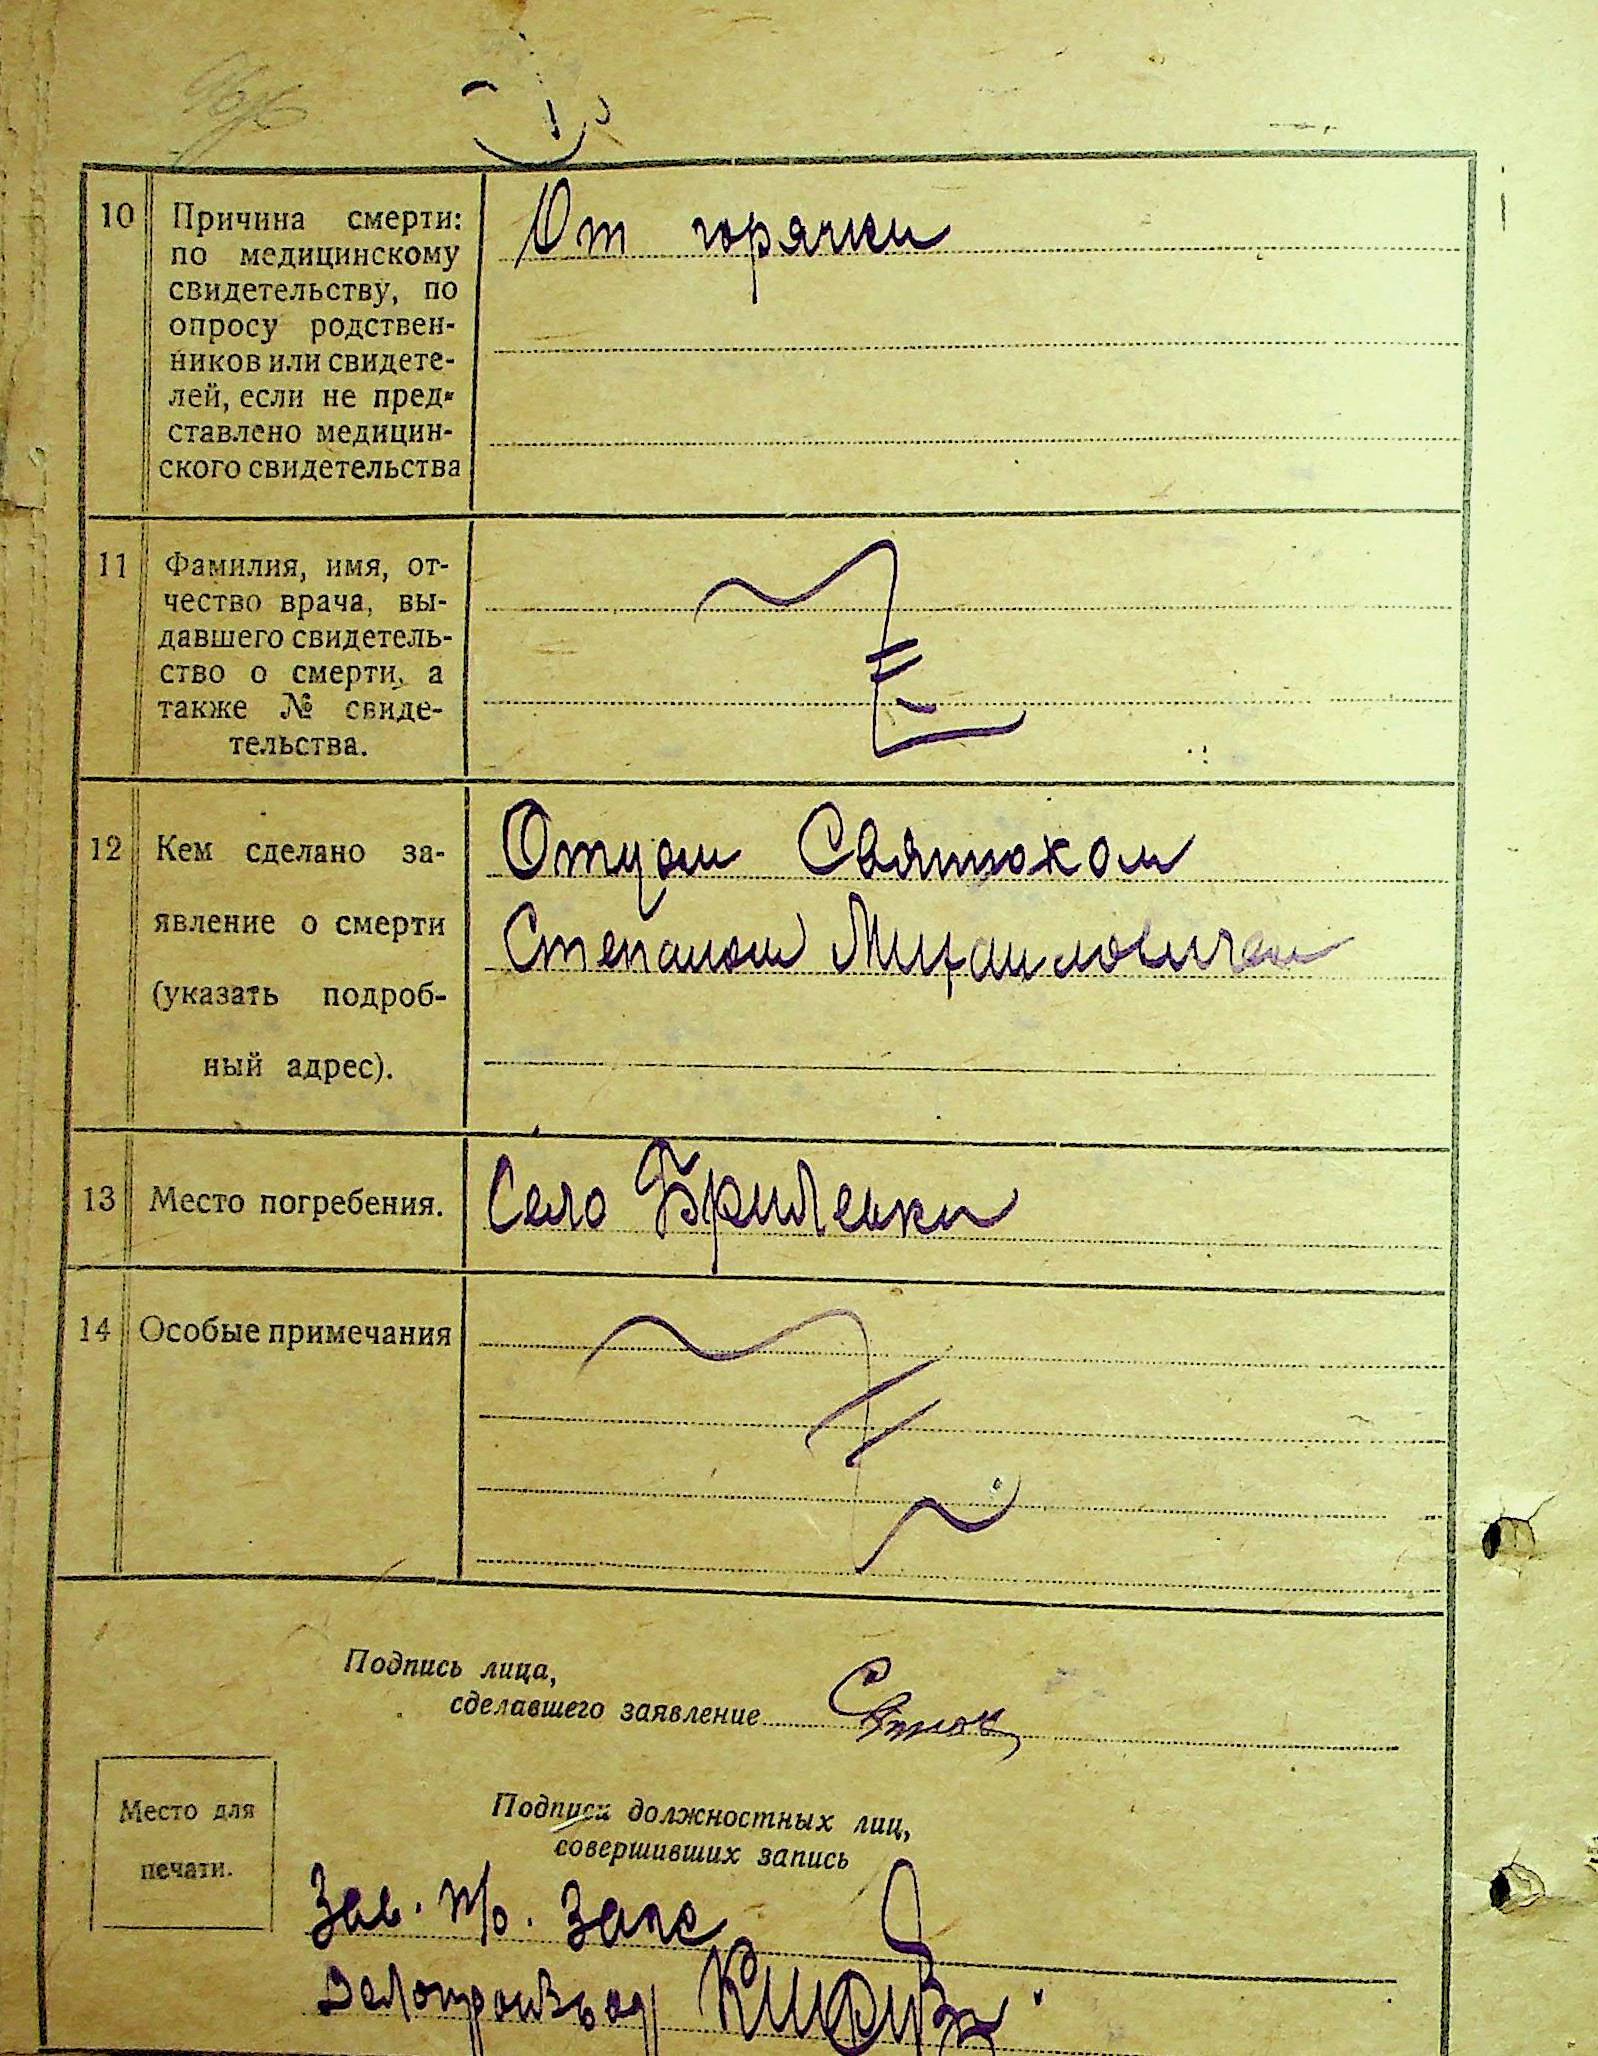 10 Причина смерти: От горячки
по медицинскому
свидетельству, по
опросу родствен-
ников или свидете-
лей, если не пред-
ставлено медицин-
ского свидетельства
11 Фамилия, имя, от-
чество врача, вы-
давшего свидетель-
ство о смерти, а
также № свиде-
тельства.
12 Кем сделано за- Отцом Святюком
явление о смерти Степаном Михаиловичем
(указать подроб-
ный адрес).
13 Место погребения. Село Брилевки
14 Особые примечания
Подпись лица,
сделавшего заявление
Место для
печати.
Подписи должностных лиц,
совершивших запись
Зав. т/о. Загс
Делопроизвод